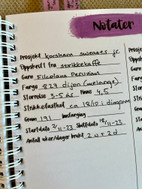 Notater
Prosjekt horisham sweater jr.
Oppskrift fra strikkekaffe
Garn Filcolana Peruvian
Farge 829 dijon (melange)
Størrelse 3-5 år Pinne 4,5
Strikkefasthet ca 18/10 i diagram
Gram 191
Startdato 2/11-23 Sluttdato 18/11-23
Antall nker/dager brukt 2 u + 2 d